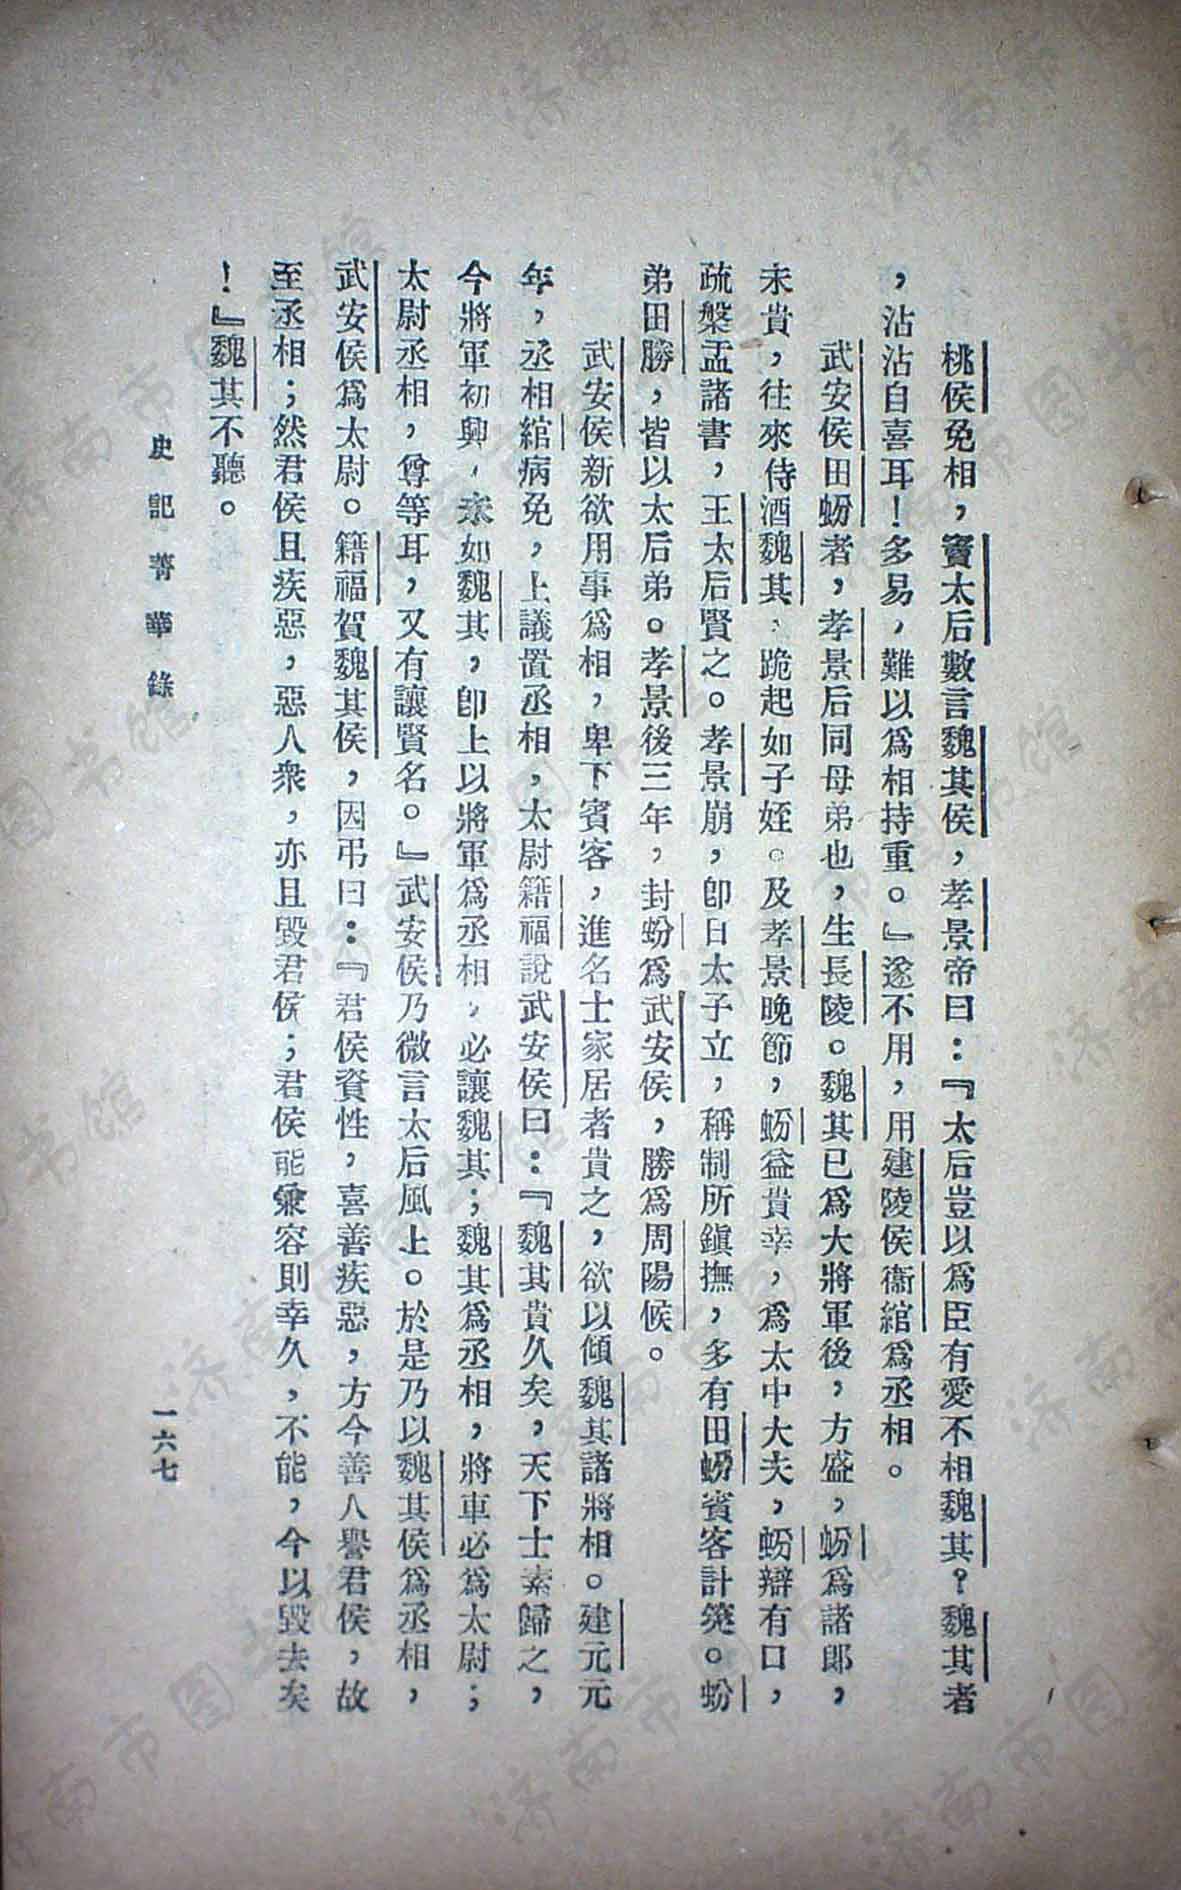 桃侯免相，竇太后數言魏其侯，孝景帝曰：『太后豈以爲臣有愛不相魏其？魏其者
，沾沾自喜耳！多易，難以爲相持重。』遂不用，用建陵侯衞綰爲丞相。
武安侯田蚡者，孝景后同母弟也，生長陵。魏其已爲大將軍後，方盛，蚡爲諸郎，
未貴，往來侍酒魏其，跪起如子姪。及孝景晚節，蚡益貴幸，爲太中大夫，蚡辯有口，
疏槃盂諸書，王太后賢之。孝景崩，卽日太子立，稱制所鎭撫，多有田蚡賓客計筴。蚡
弟田勝，皆以太后弟。孝景後三年，封蚡爲武安侯，勝爲周陽候。
武安侯新欲用事爲相，卑下賓客，進名士家居者貴之，欲以傾魏其諸將相。建元元
年，丞相綰病免，上議置丞相，太尉籍福說武安侯曰：『魏其貴久矣，天下士素歸之，
今將軍初興，未如魏其，卽上以將軍爲丞相，必讓魏其；魏其爲丞相，將車必爲太尉；
太尉丞相，尊等耳，又有讓賢名。』武安侯乃微言太后風上。於是乃以魏其侯爲丞相，
武安侯爲太尉。籍福賀魏其侯，因弔曰：『君侯資性，喜善疾惡，方今善人譽君侯，故
至丞相；然君侯且疾惡，惡人衆，亦且毀君侯；君侯能兼容則幸久，不能，今以毀去矣
！』魏其不聽。
史記菁華錄
一六七
济南市图书馆